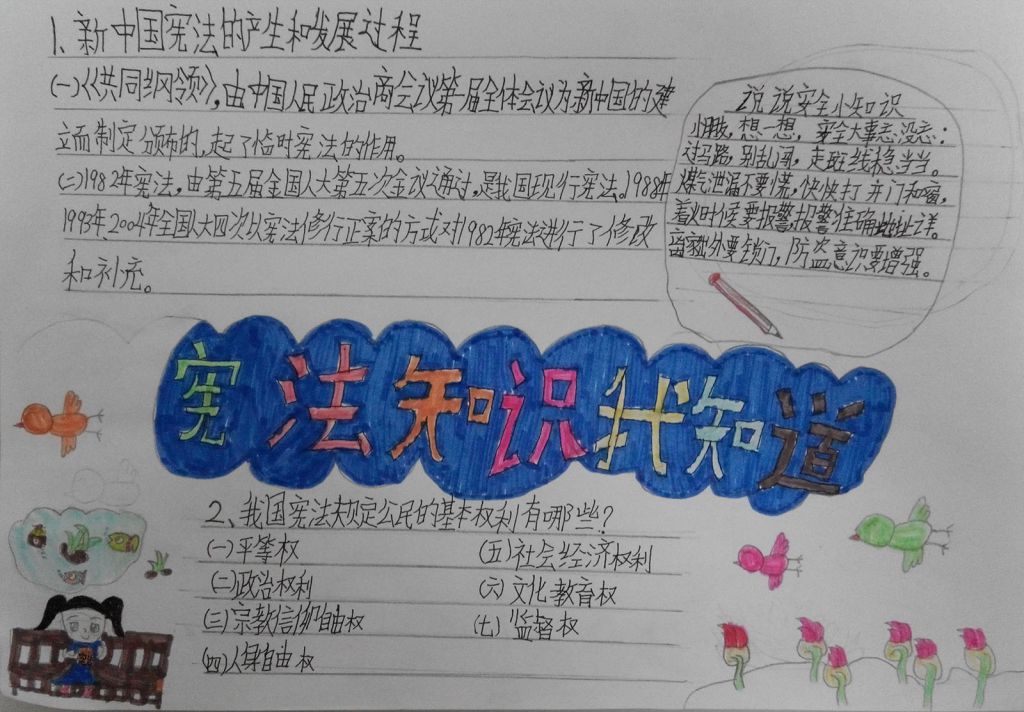 1、新中国宪法的产生和发展过程
(一)《共同纲领》,由中国人民政治商会议第一届全体会议为新中国的建
立而制定颁布的,起了临时宪法的作用。
(二)1982年宪法,由第五届全国人大第五次会议通过,是我国现行宪法。1988年
1993年、2004年全国人大四次以宪法修行正案的方式对1982年宪法进行了修改
和补充。
说说安全小知识
小朋友,想一想,安全大事忘没忘:
过马路,别乱闯,走斑线稳当当。
煤气泄漏不要慌,快快打开门和窗,
着火时候要报警,报警准确地址详。
离家外要锁门,防盗意识要增强。
宪法知识我知道
2、我国宪法规定公民的基本权利有哪些?
(一)平等权
(二)政治权利
(三)宗教信仰自由权
(四)人身自由权
(五)社会经济权利
(六)文化教育权
(七)监督权